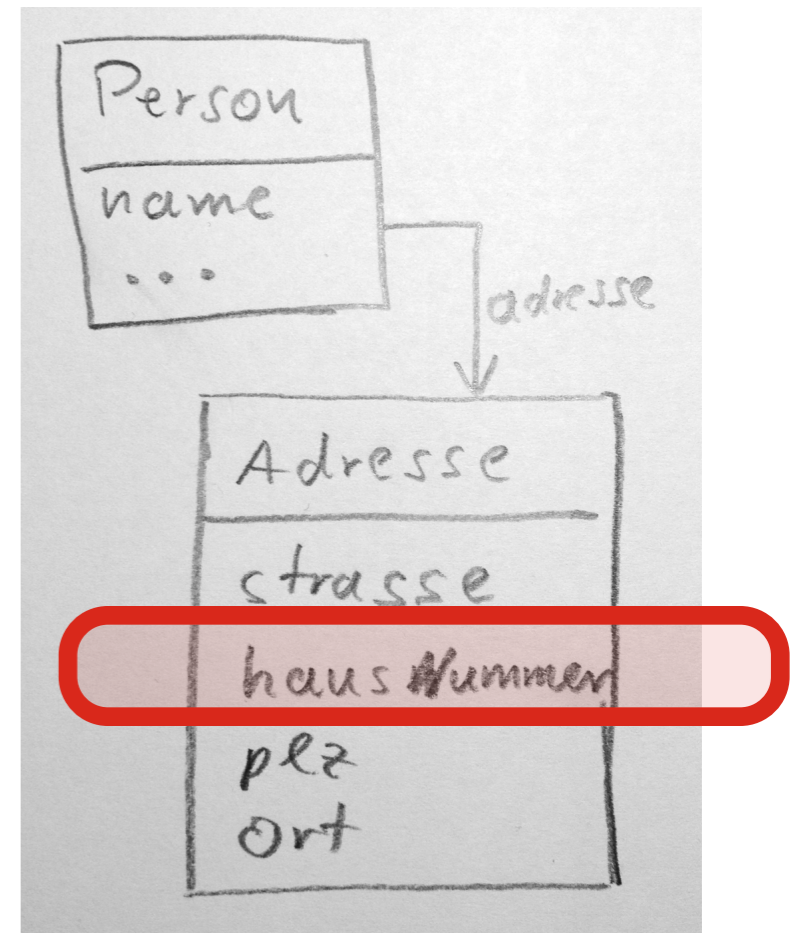 Person
name
...
adresse
Adresse
strasse
hausNummer
plz
Ort